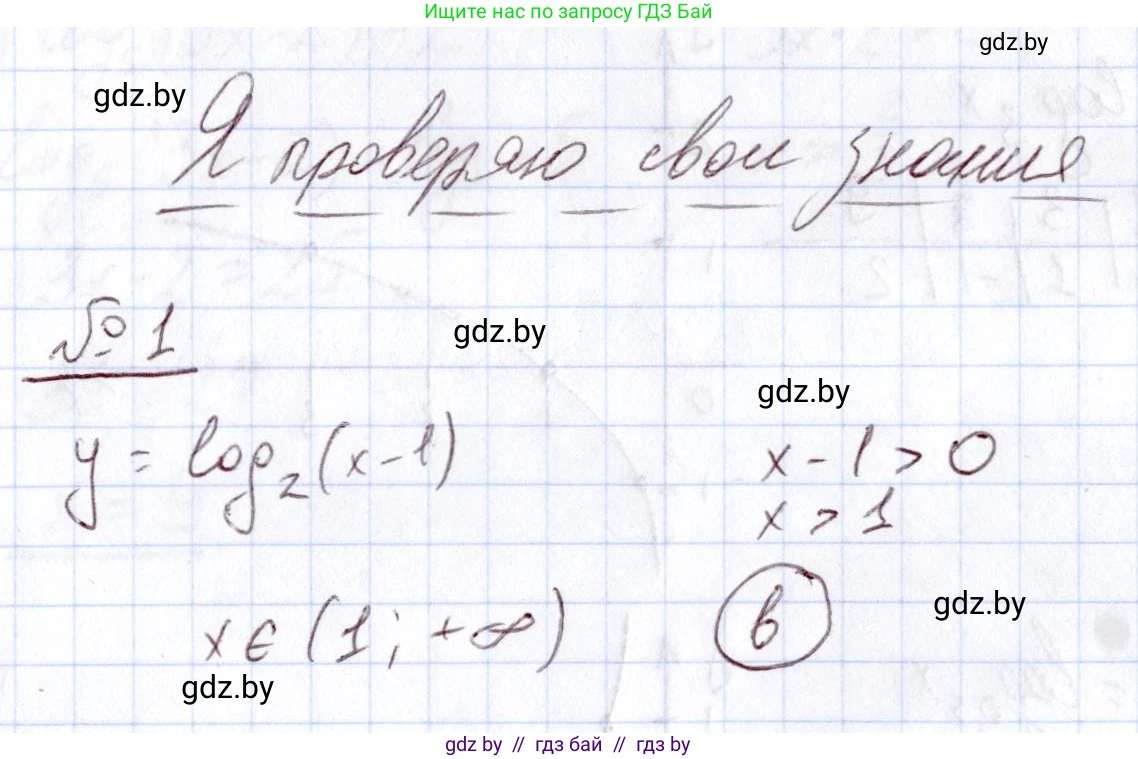 Ищите нас по запросу ГДЗ Бай
gdz.by
gdz.by
Я проверяю свои знания
№ 1
gdz.by
gdz.by
y = log₂(x-1)
x - 1 > 0
x > 1
x ∈ (1; +∞)
в
gdz.by
gdz.by
gdz by // гдз бай // гдз by